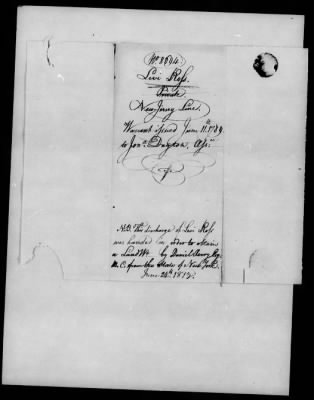 No 8684.
Levi Ross.
Private
New Jersey Line.
Warrant issued June 11th 1789
to Jona. Dayton, Assee
N.B. This discharge of Levi Ross
was handed in order to obtain
a Land Wt by Daniel Avery Esq.
M.C. from the State of New York.
June 24th 1812.